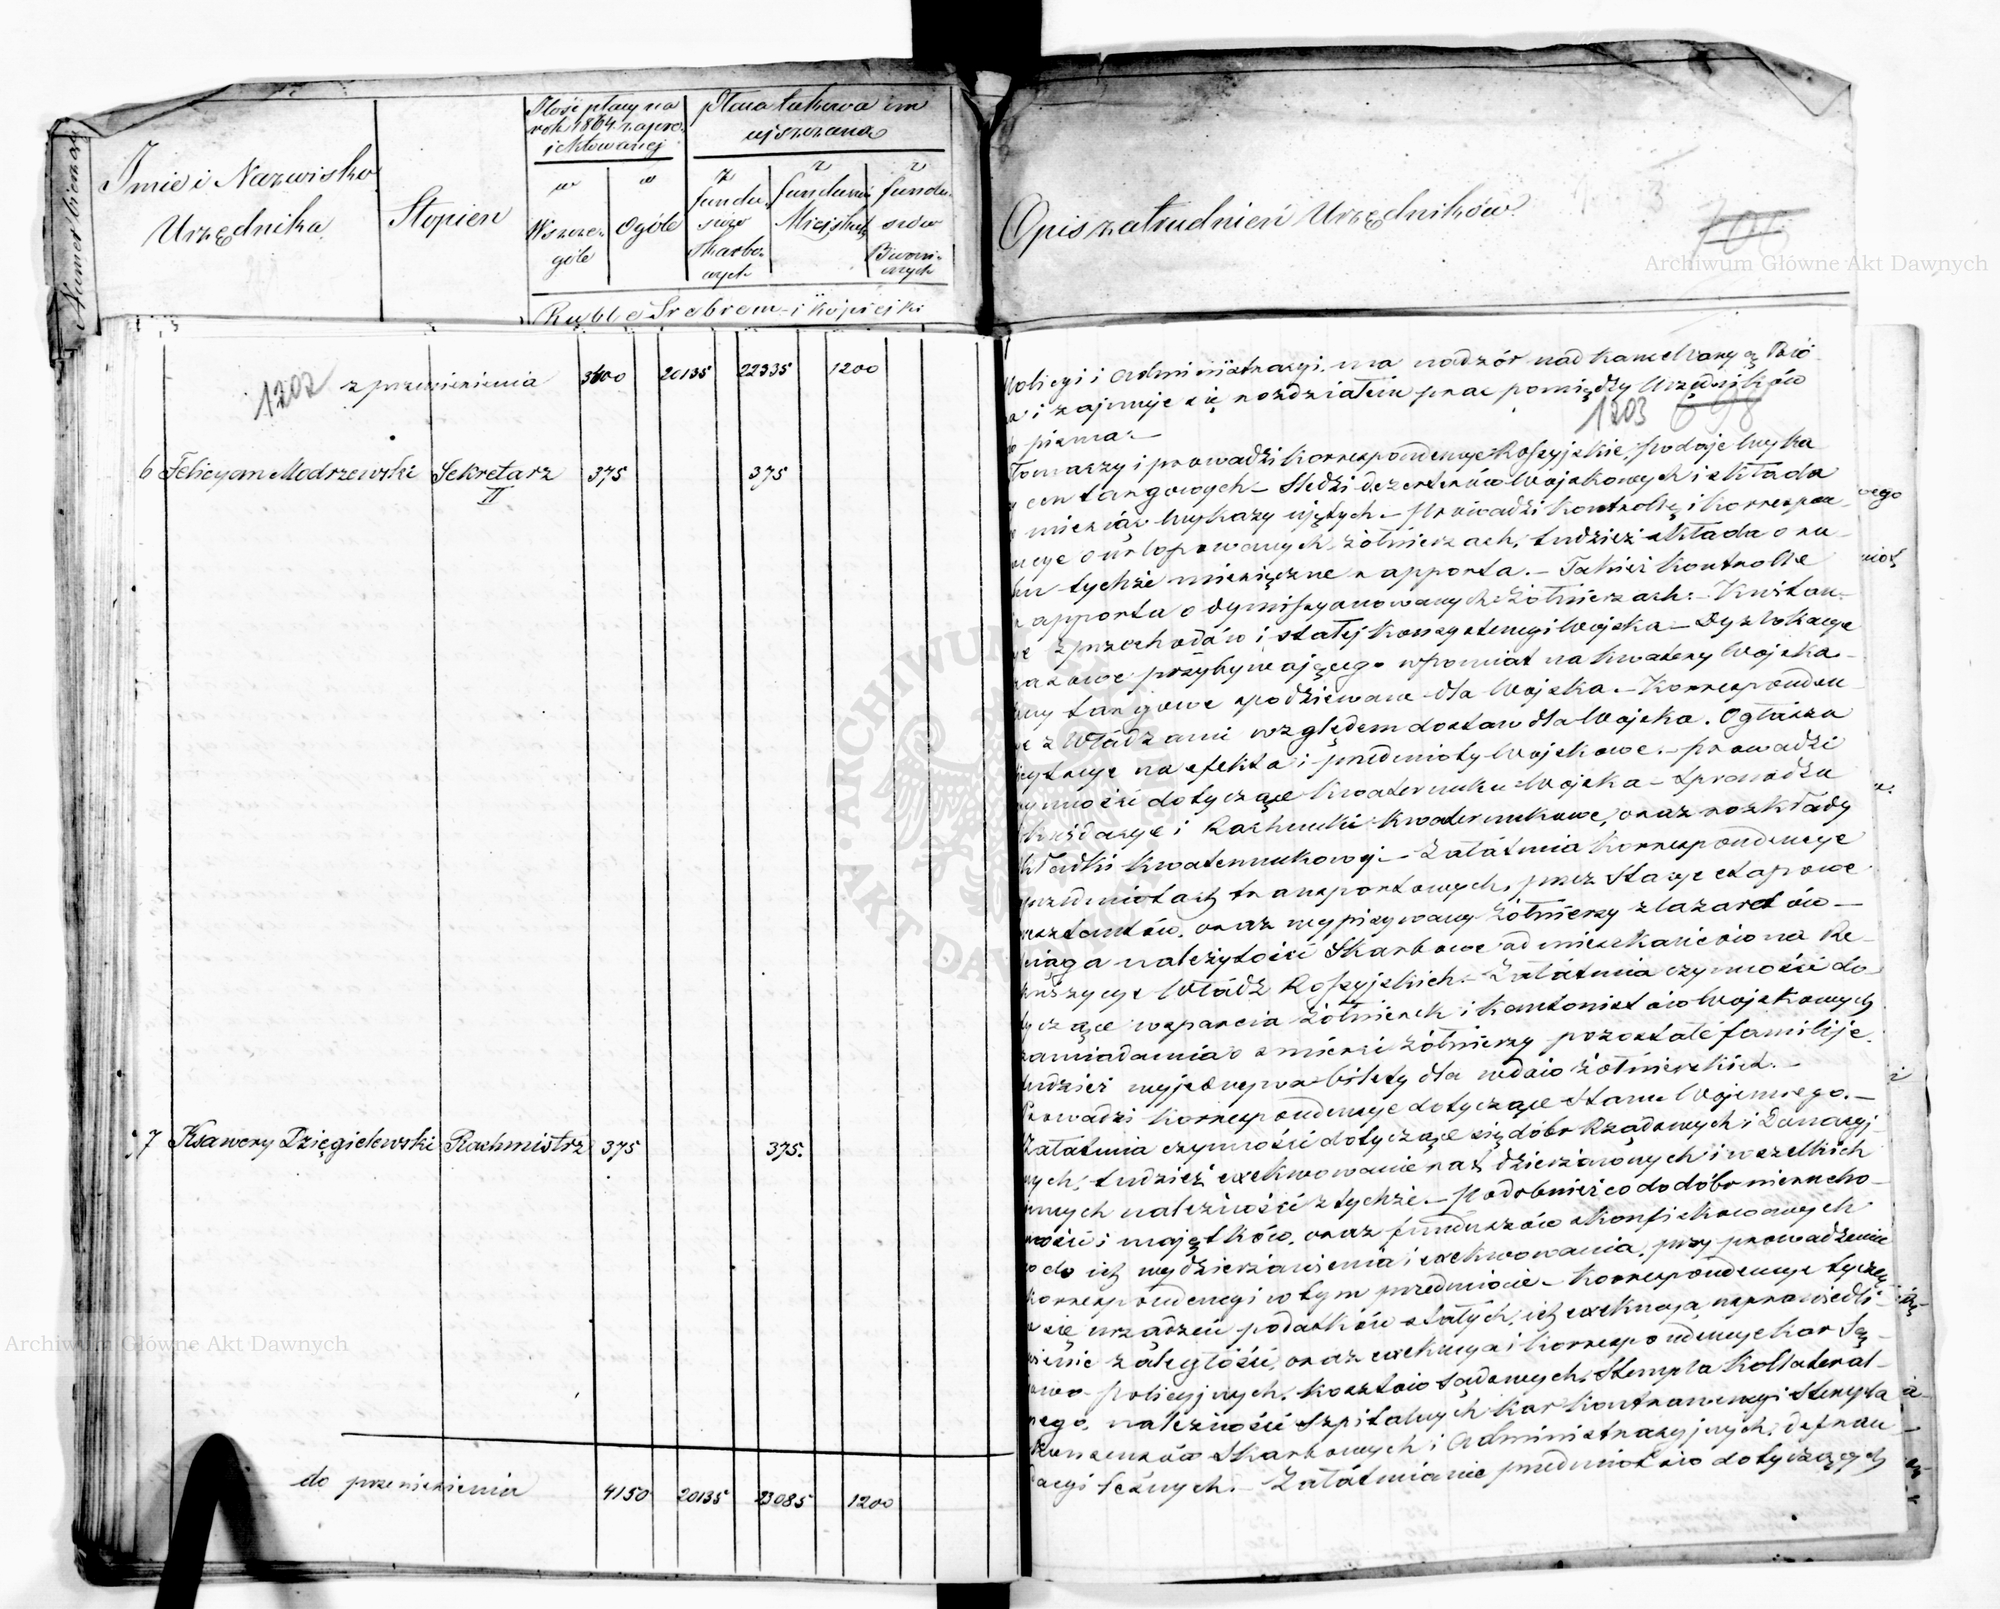 Numer bieżący
Imie i Nazwisko
Urzędnika
Stopień
Ilość płacy na
rok 1864 zapro-
jektowanej
w
Wszcze-
góle
w
Ogóle
płaca takowa im
uiszczana
z
fundu-
szów
Skarbo-
wych
z
funduszów
Miejskich
z
fundu-
szów
Ruble Srebrem i kopiejki
1202
z przeniesienia 3400 20135 22335 1200
6 Felicyan Modrzewski Sekretarz 375 375
II
7 Ksawery Dzięgielewski Rachmistrz 375 375.
do przeniesienia 4150 20135 23085 1200
Opis zatrudnień Urzędników.
706
Policyi i Administracyi, ma nadzór nad Kancellaryą Bió-
i zajmuje się rozdziałem prac pomiędzy Urzędników
1203 698
pisma.—
Tłomaczy i prowadzi Korrespondencye Rossyjskie, podaje wyka
cen targowych — Śledzi dezerterów Wojskowych i składa
wykazy ujętych.— Prowadzi Kontrollę i Korrespon-
o urlopowanych żołnierzach, tudzież składa o ru-
tychże miesięczne rapporta.— Takież Kontrolle
rapporta o dymissyonowanych żołnierzach.— Kwitan-
z przechodów i stałej Konsystencyi Wojska — Dyslokacye
przybywającego wpomiar na kwatery Wojska.—
targowe spodziewane dla Wojska.— Korresponden-
z Władzami względem dostaw dla Wojska. Ogłasza
licytacye na efekta i przedmioty Wojskowe.— prowadzi
czynności dotyczące Kwaterunku Wojska — Sprawdza
i Rachunki Kwaterunkowe, oraz rozkłady
składki kwaterunkowej.— Załatwia Korrespondencye
przedmiotach transportowych, przez Stacye etapowe
aresztantów, oraz wypisywanych Żołnierzy z lazaretów—
należytości Skarbowe od mieszkańców na Re-
Władz Rossyjskich.— Załatwia czynności do-
tyczące wsparcia żołnierek i Kantonistów Wojskowych
zawiadamia o śmierci żołnierzy pozostałe familije.
tudzież wyjednywa bilety dla wdów żołnierskich.—
Prowadzi Korrespondencye dotyczące Stanu Wojennego.—
Załatwia czynności dotyczące się dóbr Rządowych i Donacyj-
nych, tudzież exekwowanie rat dzierżawnych i wszelkich
innych należności z tychże.— Podobnież co do dóbr nierucho-
mości i majątków, oraz funduszów skonfiskowanych
co do ich wydzierżawienia i exekwowania, przy prowadzeniu
Korrespondencyi w tym przedmiocie — Korrespondencye tyczą-
się urządzeń podatków stałych, ich exekucya, usprawiedli-
wienie zaległości, oraz exekucya i Korrespondencye Kar Są-
dowo-policyjnych, Kosztów sądowych, Stempla Kollateral-
nego, należności Szpitalnych Kar Kontrawencyi Stempla
Konsensów Skarbowych i Administracyjnych, defrau-
dacyi leśnych.— Załatwianie przedmiotów dotyczących
ARCHIWUM GŁÓWNE AKT DAWNYCH
Archiwum Główne Akt Dawnych
Archiwum Główne Akt Dawnych